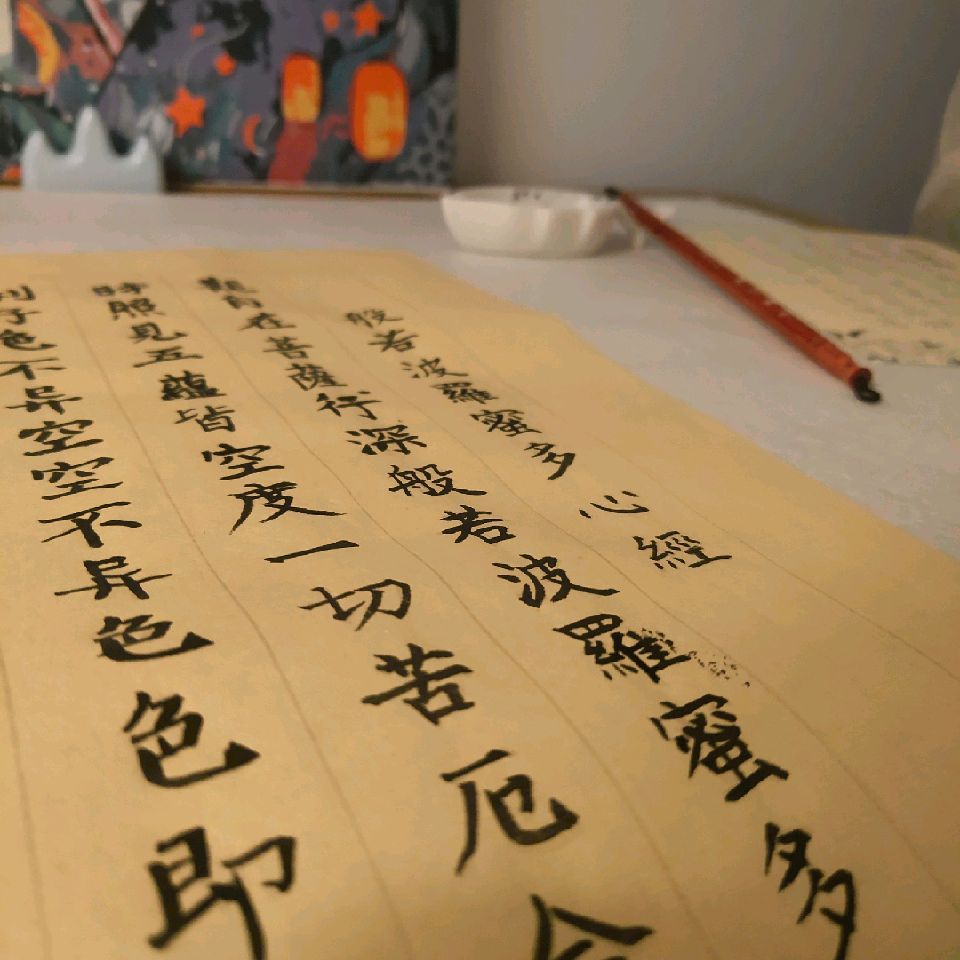 般若波羅蜜多心經
觀自在菩薩行深般若波羅蜜多
時照見五蘊皆空度一切苦厄舍
利子色不异空空不异色色即